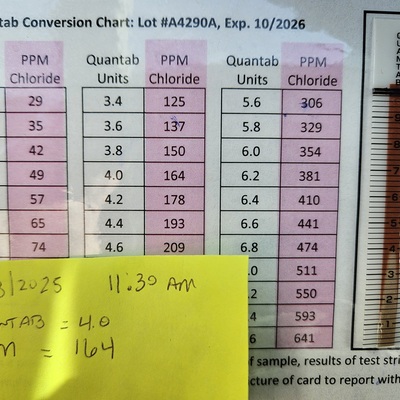 tab Conversion Chart: Lot #A4290A, Exp. 10/2026
PPM Chloride Quantab Units PPM Chloride Quantab Units PPM Chloride
29 3.4 125 5.6 306
35 3.6 137 5.8 329
42 3.8 150 6.0 354
49 4.0 164 6.2 381
57 4.2 178 6.4 410
65 4.4 193 6.6 441
74 4.6 209 6.8 474
.0 511
.2 550
.4 593
6 641
/2025 11:30 AM
NTAB = 4.0
M = 164
of sample, results of test stri
cture of card to report with
QUANTAB
9
8
7
6
5
4
3
2
1